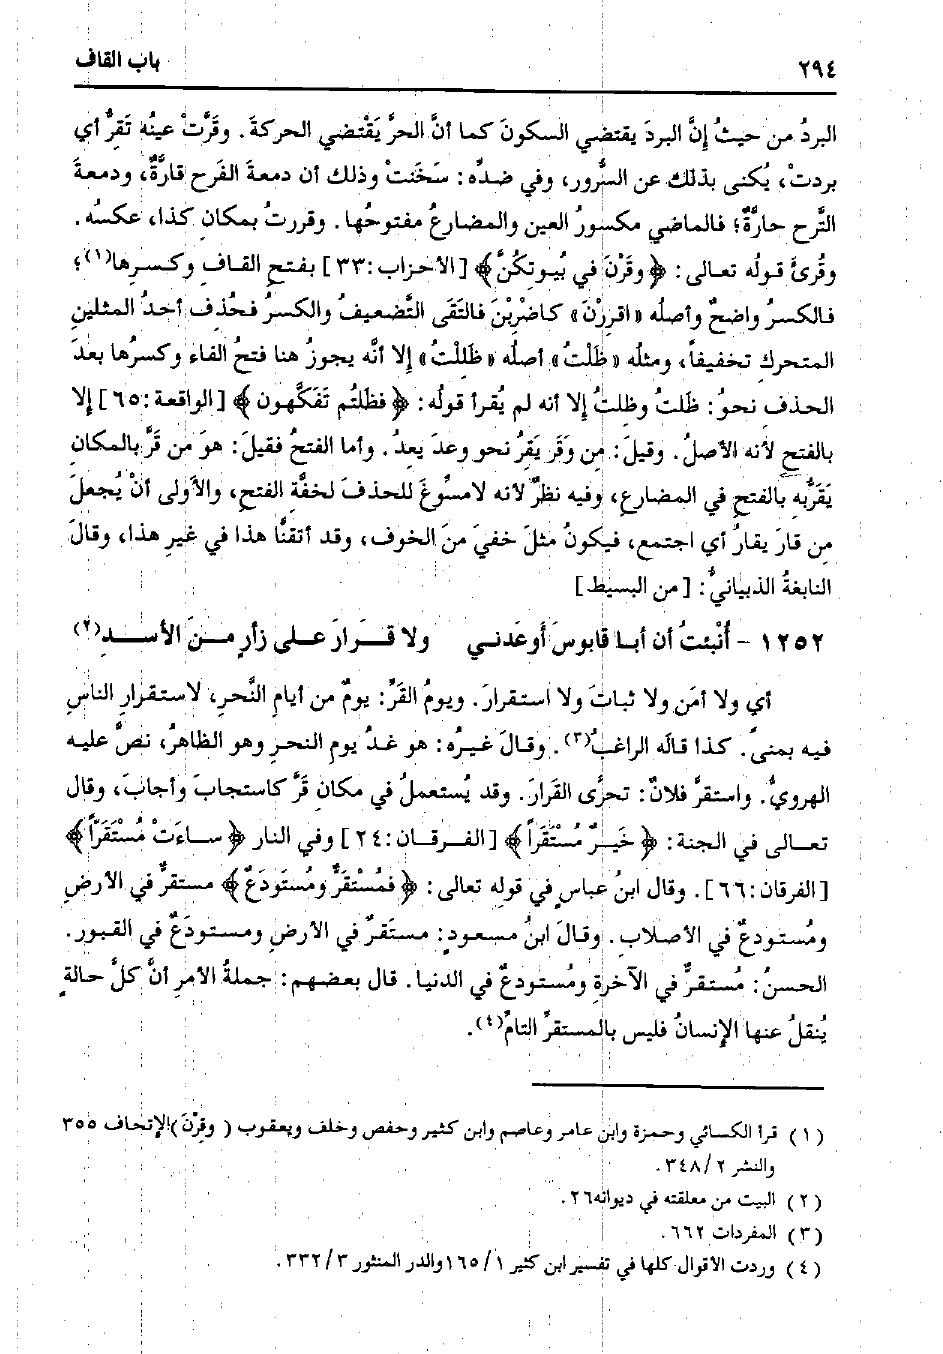 ٢٩٤
باب القاف
البردُ من حيثُ إِنَّ البردَ يقتضي السكونَ كما أنَّ الحرَّ يَقْتضي الحركةَ. وقَرَّتْ عينُه تَقِرُّ أي
بردتْ، يُكنى بذلك عن السُّرور، وفي ضدِّه: سَخَنتْ وذلك أن دمعةَ الفَرحِ قارَّةٌ، ودمعةَ
التَّرحِ حارَّةٌ؛ فالماضي مكسورُ العين والمضارعُ مفتوحُها. وقررتُ بمكان كذا، عكسُه.
وقُرئَ قولُه تعالى: ﴿وقَرْنَ في بُيوتِكُنَّ﴾ [الأحزاب:٣٣] بفتح القاف وكسرِها(١)؛
فالكسرُ واضحٌ وأصلُه «اقرِرْنَ» كاضْرِبْنَ فالتَقَى التَّضعيفُ والكسرُ فحُذف أحدُ المثلينِ
المتحرك تخفيفاً، ومثلُه «ظَلْتُ» أصلُه «ظَلِلْتُ» إلا أنَّه يجوزُ هنا فتحُ الفاء وكسرُها بعدَ
الحذف نحوُ: ظَلتُ وظِلتُ إلا أنه لم يُقرأ قولُه: ﴿فظَلتُم تَفَكَّهون﴾ [الواقعة:٦٥] إلا
بالفتحِ لأنه الأصلُ. وقيلَ: مِن وَقَر يَقِرُ نحو وعدَ يعدُ. وأما الفتحُ فقيلَ: هوَ من قَرَّ بالمكانِ
يَقَرُّبه بالفتحِ في المضارعِ، وفيه نظرٌ لأنه لامسوِّغَ للحذفَ لخفَّة الفتحِ، والأَولى أنْ يُجعلَ
من قارَ يقارُ أي اجتمع، فيكونُ مثلَ خفيَ منَ الخوف، وقد أتقنَّا هذا في غيرِ هذا، وقالَ
النابغةُ الذبيانيُّ: [من البسيط]
١٢٥٢ - أُنْبئتُ أن أبا قابوسَ أَوعَدني     ولا قَرارَ على زأرٍ منَ الأسدِ(٢)
أي ولا أمَن ولا ثباتَ ولا استقرارَ. ويومُ القَرِّ: يومٌ من أيامِ النَّحرِ، لاستقرارِ الناسِ
فيه بمنىً. كذا قالَه الراغبُ(٣). وقالَ غيرُه: هو غدُ يوم النحرِ وهو الظاهرُ، نصَّ عليه
الهرويُّ. واستقرَّ فلانٌ: تحرَّى القَرارَ. وقد يُستعملُ في مكانِ قَرَّ كاستجابَ وأجابَ، وقال
تعالى في الجنة: ﴿خَيرٌ مُسْتَقَراً﴾ [الفرقان:٢٤] وفي النار ﴿ساءَتْ مُسْتَقَرّاً﴾
[الفرقان:٦٦]. وقال ابنُ عباسٍ في قوله تعالى: ﴿فمُسْتَقَرٌّ ومُستَودَعٌ﴾ مستقرٌّ في الأرضِ
ومُستودعٌ في الأصلاب. وقالَ ابنُ مسعود: مستَقرٌ في الأرضِ ومستودَعٌ في القبور.
الحسنُ: مُستقرٌّ في الآخرةِ ومُستودعٌ في الدنيا. قال بعضهم: جملةُ الأمرِ أنَّ كلَّ حالةٍ
يُنقلُ عنها الإنسانُ فليس بالمستقرِّ التامِّ(٤).
(١) قرأ الكسائي وحمزة وابن عامر وعاصم وابن كثير وحفص وخلف ويعقوب (وقِرْنَ)الإتحاف ٣٥٥
والنشر ٢/٣٤٨.
(٢) البيت من معلقته في ديوانه٢٦.
(٣) المفردات ٦٦٢.
(٤) وردت الأقوال كلها في تفسير ابن كثير ١/١٦٥والدر المنثور ٣/٣٣٢.